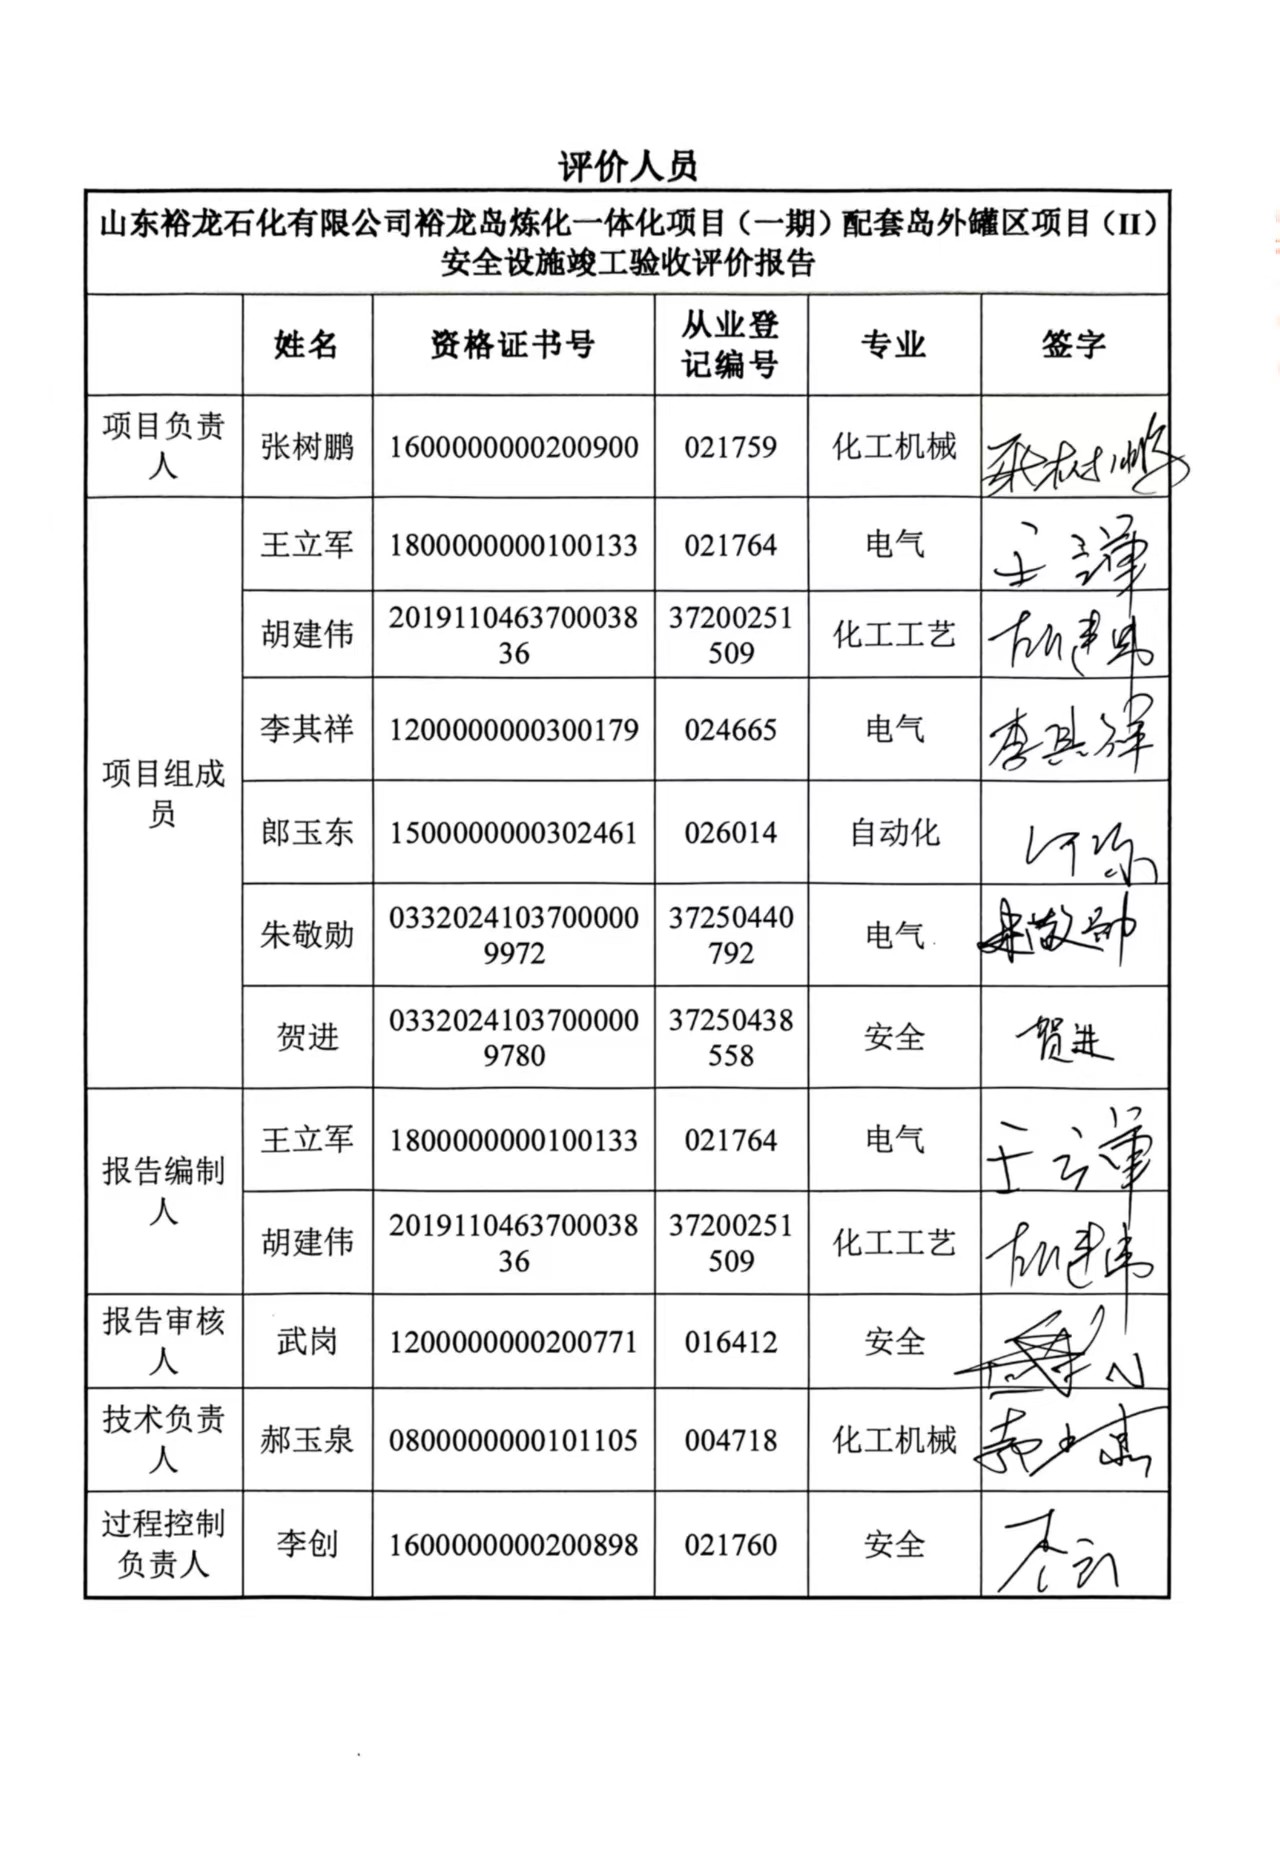 评价人员
山东裕龙石化有限公司裕龙岛炼化一体化项目（一期）配套岛外罐区项目（II）
安全设施竣工验收评价报告
姓名 资格证书号 从业登记编号 专业 签字
项目负责人 张树鹏 1600000000200900 021759 化工机械 张树鹏
项目组成员 王立军 1800000000100133 021764 电气 王立军
胡建伟 201911046370003836 37200251509 化工工艺 胡建伟
李其祥 1200000000300179 024665 电气 李其祥
郎玉东 1500000000302461 026014 自动化
朱敬勋 03320241037000009972 37250440792 电气 朱敬勋
贺进 03320241037000009780 37250438558 安全 贺进
报告编制人 王立军 1800000000100133 021764 电气 王立军
胡建伟 201911046370003836 37200251509 化工工艺 胡建伟
报告审核人 武岗 1200000000200771 016412 安全
技术负责人 郝玉泉 0800000000101105 004718 化工机械 郝玉泉
过程控制负责人 李创 1600000000200898 021760 安全 李创